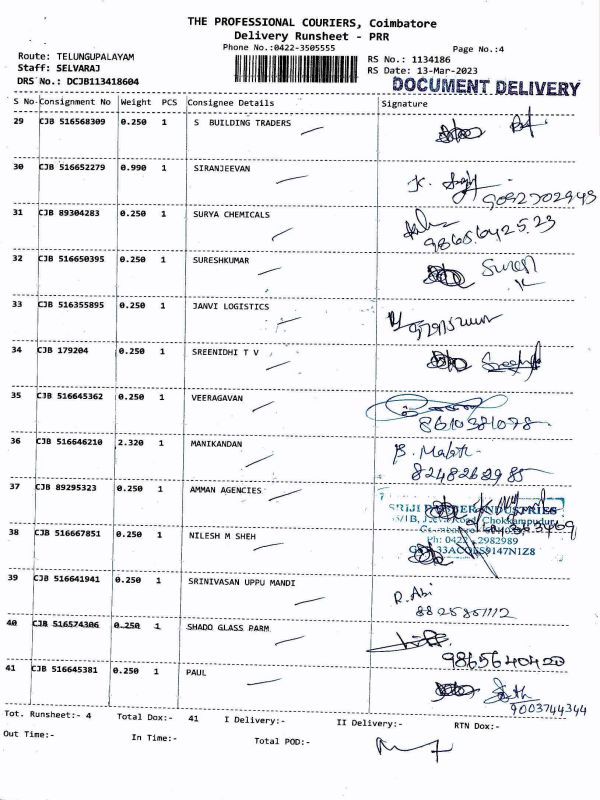 THE PROFESSIONAL COURIERS, Coimbatore
Delivery Runsheet - PRR
Phone No.:0422-3505555
Page No.:4
Route: TELUNGUPALAYAM
Staff: SELVARAJ
DRS No.: DCJB113418604
RS No.: 1134186
RS Date: 13-Mar-2023
DOCUMENT DELIVERY
S No Consignment No Weight PCS Consignee Details Signature
29 CJB 516568309 0.250 1 S BUILDING TRADERS
30 CJB 516652279 0.990 1 SIRANJEEVAN
9092702943
31 CJB 89304283 0.250 1 SURYA CHEMICALS
9865642523
32 CJB 516650395 0.250 1 SURESHKUMAR
Suresh
K
33 CJB 516355895 0.250 1 JANVI LOGISTICS
34 CJB 179204 0.250 1 SREENIDHI T V
35 CJB 516645362 0.250 1 VEERAGAVAN
8610381078
36 CJB 516646210 2.320 1 MANIKANDAN
8248262985
37 CJB 89295323 0.250 1 AMMAN AGENCIES
INDUSTRIES
Chokkampudur
Ph: 0422 - 2982989
38 CJB 516667851 0.250 1 NILESH M SHEH
39 CJB 516641941 0.250 1 SRINIVASAN UPPU MANDI
R. Abi
40 CJB 516574306 0.250 1 SHADO GLASS PARM
9865640420
41 CJB 516645381 0.250 1 PAUL
9003744344
Tot. Runsheet:- 4 Total Dox:- 41 I Delivery:- II Delivery:- RTN Dox:-
Out Time:- In Time:- Total POD:-